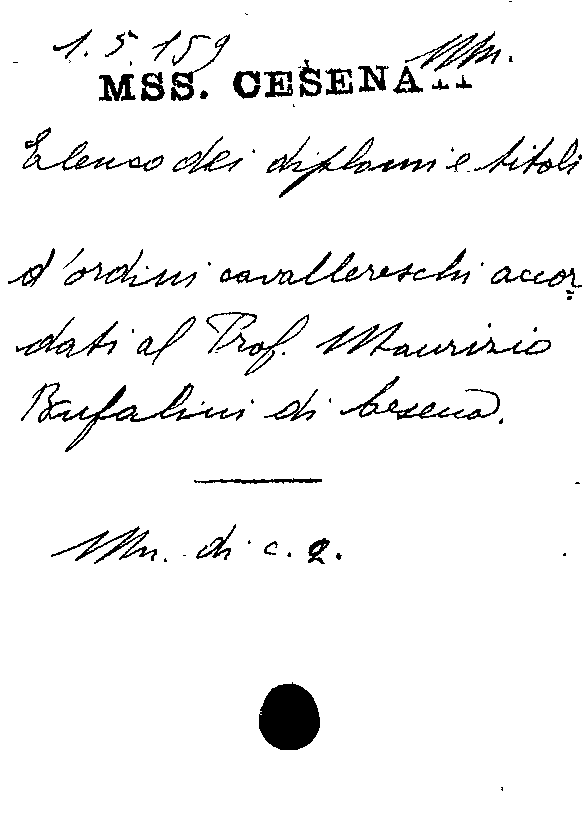 1.5.159 Mn.
MSS. CESENATI
Elenco dei diplomi e titoli
d'ordini cavallereschi accor
dati al Prof. Maurizio
Bufalini di Cesena.
Mn. di c. 2.